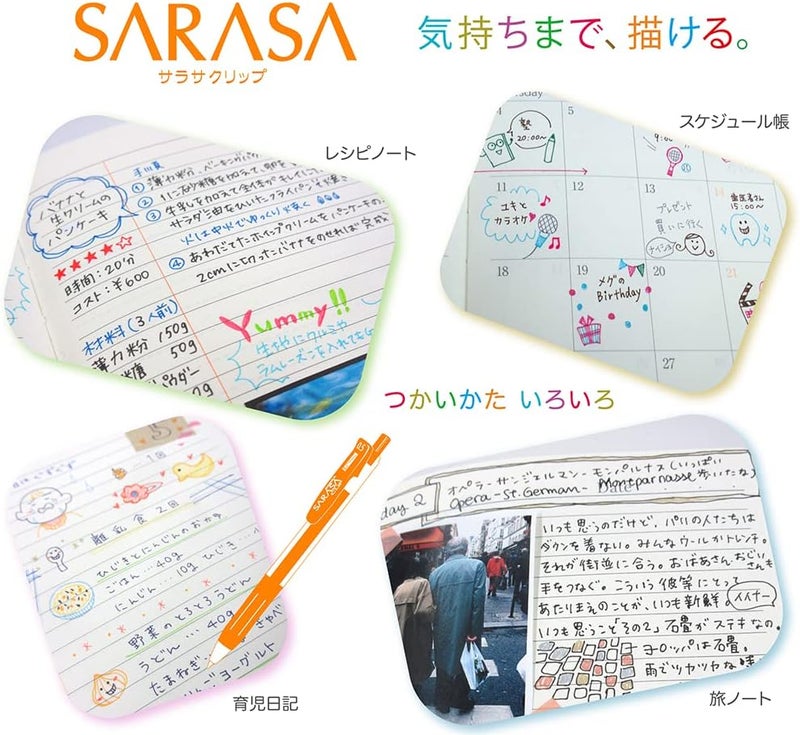 SARASA
サラサクリップ
気持ちまで、描ける。
レシピノート
バナナと
生クリームの
パンケーキ
★★★★☆
時間：20分
コスト：¥600
材料(3人前)
薄力粉 150g
糖 50g
パウダー
手順
① 薄力粉、ベーキングパ
② 1に砂糖を加えて卵を
③ 牛乳を加えて
サラダ油をひいたフライパンで焼く
火は中火でゆっくり焼く
④ あわだてたホイップクリームをパンケーキの
2cmに切ったバナナをのせれば完成
Yummy!!
生地にクルミや
ラムレーズンを入れても
スケジュール帳
4
5
塾
20:00〜
9:00
11
12
13
ユキと
カラオケ
プレゼント
買いに行く
歯医者さん
15:00〜
18
19
20
21
メグの
Birthday
27
つかいかた いろいろ
5
1回
離乳食 2回
ひじきとにんじんのおかず
ごはん…40g ひじき…
にんじん…10g
野菜のとろとろうどん
うどん…40g
たまねぎ
りんごヨーグルト
SARASA
0.5
育児日記
day 2
オペラ-サンジェルマン-モンパルナス(いっぱい
Opera-St.German-Montparnasse 歩いたな)
いつも思うのだけど、パリの人たちは
ダウンを着ない。みんなウールかトレンチ。
それが街並に合う。おばあさんおじいさんも
手をつなぐ。こういう彼等にとって
あたりまえのことが、いつも新鮮。イイナー
いつも思うこと「その2」石畳がステキなの。
ヨーロッパは石畳。
雨でツヤツヤな時
旅ノート